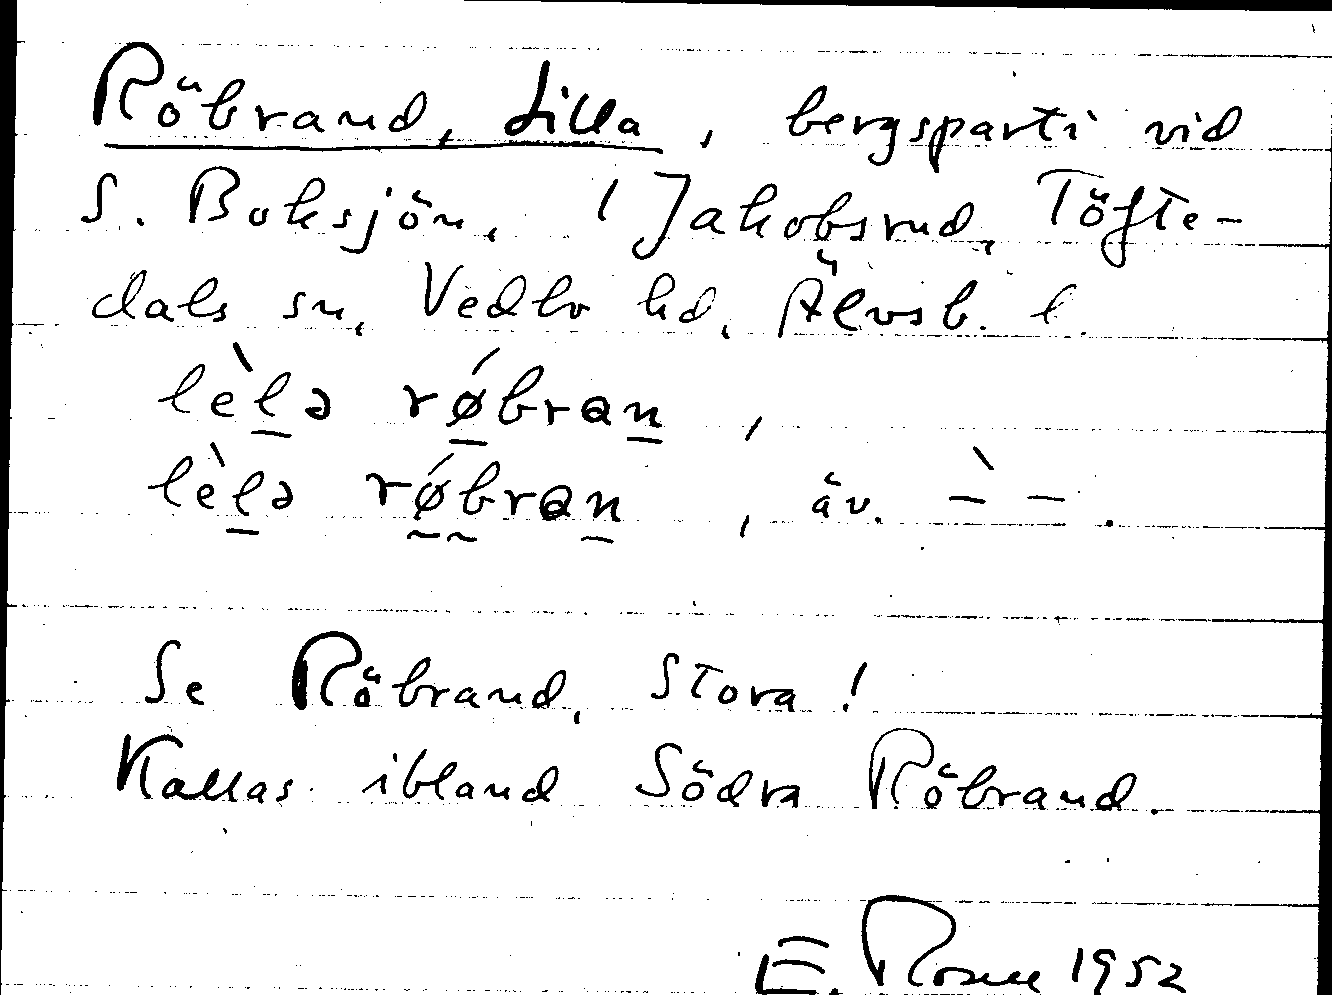 Röbrand, Lilla, bergsparti vid
S. Boksjön, / Jakobsrud, Töfte-
dals sn, Vedbo hd, Älvsb. l.
lèlə røbran,
lèlə røbran, äv. ` – –.
Se Röbrand, Stora!
Kallas ibland Södra Röbrand.
E. Rosen 1952